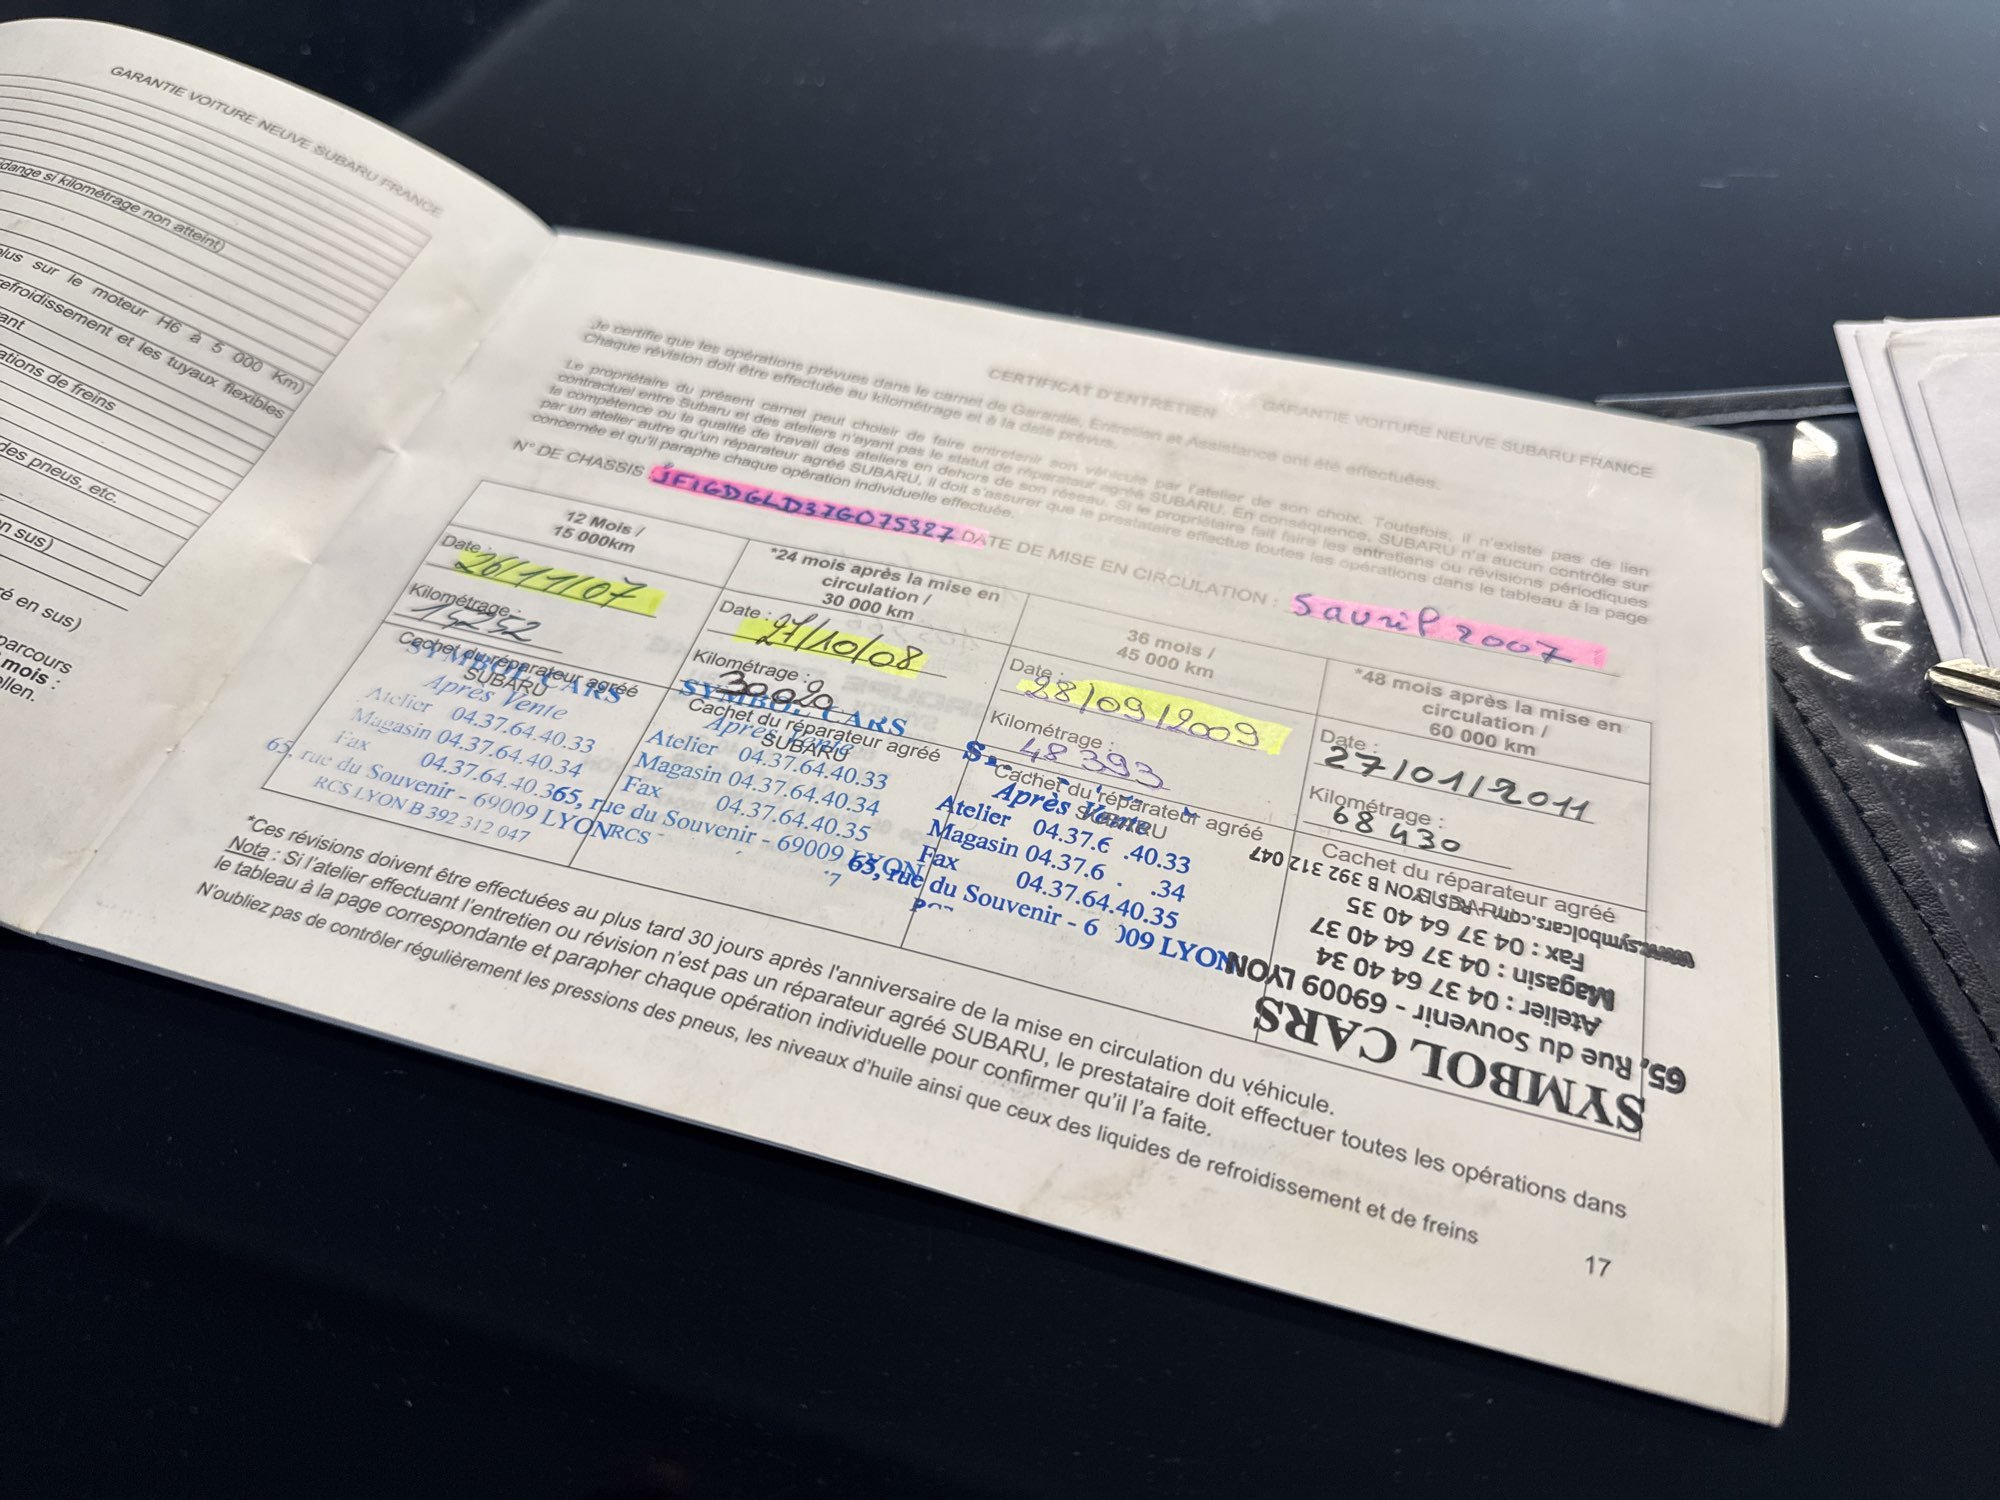 GARANTIE VOITURE NEUVE SUBARU FRANCE
dange si kilométrage non atteint)
plus sur le moteur H6 à 5 000 Km)
refroidissement et les tuyaux flexibles
ant
ations de freins
des pneus, etc.
n sus)
ré en sus)
parcours
mois :
ollen.
CERTIFICAT D'ENTRETIEN
GARANTIE VOITURE NEUVE SUBARU FRANCE
Je certifie que les opérations prévues dans le carnet de Garantie, Entretien et Assistance ont été effectuées.
Chaque révision doit être effectuée au kilométrage et à la date prévus.
Le propriétaire du présent carnet peut choisir de faire entretenir son véhicule par l'atelier de son choix. Toutefois, il n'existe pas de lien
contractuel entre Subaru et des ateliers n'ayant pas le statut de réparateur agréé SUBARU. En conséquence, SUBARU n'a aucun contrôle sur
la compétence ou la qualité de travail des ateliers en dehors de son réseau. Si le propriétaire fait faire les entretiens ou révisions périodiques
par un atelier autre qu'un réparateur agréé SUBARU, il doit s'assurer que le prestataire effectue toutes les opérations dans le tableau à la page
concernée et qu'il paraphe chaque opération individuelle effectuée.
N° DE CHASSIS JF1GDGLD37G075327 DATE DE MISE EN CIRCULATION : 5 avril 2007
12 Mois /
15 000km
Date : 26/11/07
Kilométrage :
15252
Cachet du réparateur agréé
SUBARU
SYMBOL CARS
Après Vente
Atelier 04.37.64.40.33
Magasin 04.37.64.40.34
Fax 04.37.64.40.35
65, rue du Souvenir - 69009 LYON
RCS LYON B 392 312 047
*24 mois après la mise en
circulation /
30 000 km
Date : 27/10/08
Kilométrage :
30020
Cachet du réparateur agréé
SUBARU
SYMBOL CARS
Après Vente
Atelier 04.37.64.40.33
Magasin 04.37.64.40.34
Fax 04.37.64.40.35
65, rue du Souvenir - 69009 LYON
RCS
36 mois /
45 000 km
Date : 28/09/2009
Kilométrage :
48393
Cachet du réparateur agréé
SUBARU
Après Vente
Atelier 04.37.6 .40.33
Magasin 04.37.6 . .34
Fax 04.37.64.40.35
65, rue du Souvenir - 6 009 LYON
*48 mois après la mise en
circulation /
60 000 km
Date : 27/01/2011
Kilométrage :
68430
Cachet du réparateur agréé
SUBARU
SYMBOL CARS
65, Rue du Souvenir - 69009 LYON
Atelier : 04 37 64 40 34
Magasin : 04 37 64 40 37
Fax : 04 37 64 40 35
www.symbolcars.com - RCS LYON B 392 312 047
*Ces révisions doivent être effectuées au plus tard 30 jours après l'anniversaire de la mise en circulation du véhicule.
Nota : Si l'atelier effectuant l'entretien ou révision n'est pas un réparateur agréé SUBARU, le prestataire doit effectuer toutes les opérations dans
le tableau à la page correspondante et parapher chaque opération individuelle pour confirmer qu'il l'a faite.
N'oubliez pas de contrôler régulièrement les pressions des pneus, les niveaux d'huile ainsi que ceux des liquides de refroidissement et de freins
17